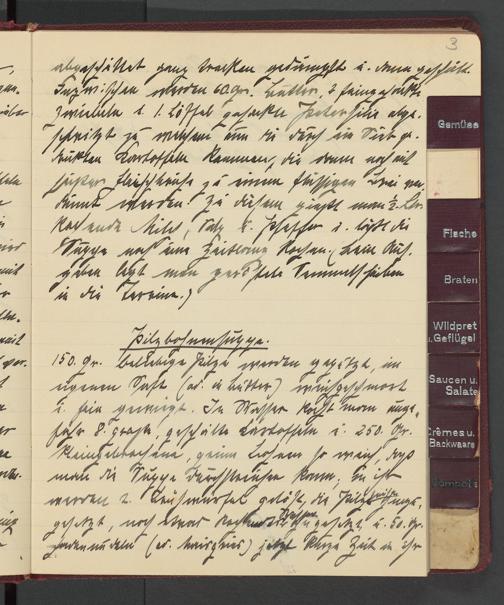 3
abgeschüttet ganz trocken gedämpft u. dann geschält.
Inzwischen werden 60 gr. Butter, 2 feingehackte
Zwiebeln u. 1 Löffel gehackte Petersilie abge-
schwitzt zu welchen man die durch ein Sieb ge-
drückten Kartoffeln kommen, die dann noch mit
Fleischbrühe zu einem flüssigen Brei ver-
dünnt werden. Zu diesem gießt man
kochende Milch, Salz u. Pfeffer u. läßt die
Suppe noch eine Zeitlang kochen. (Beim An-
geben legt man geröstete Semmelscheiben
in die Terrine.)
Pilzbohnensuppe.
150 gr. beliebige Pilze werden geputzt, im
eigenen Saft (od. in Butter) weichgeschmort
u. fein gewiegt. In Wasser kocht man unge-
fähr 8 große, geschälte Kartoffeln u. 250 gr.
Bohnen so weich, daß
man die Suppe durchstreichen kann, in ihr
werden 2 gelöst, die Pilze
gesetzt, noch etwas u. 50 gr.
Fadennudeln (od. Maisgries) kurze Zeit in ihr
Gemüse
Fische
Braten
Wildpret
u. Geflügel
Saucen u.
Salate
Crèmes u.
Backwaare
Compots